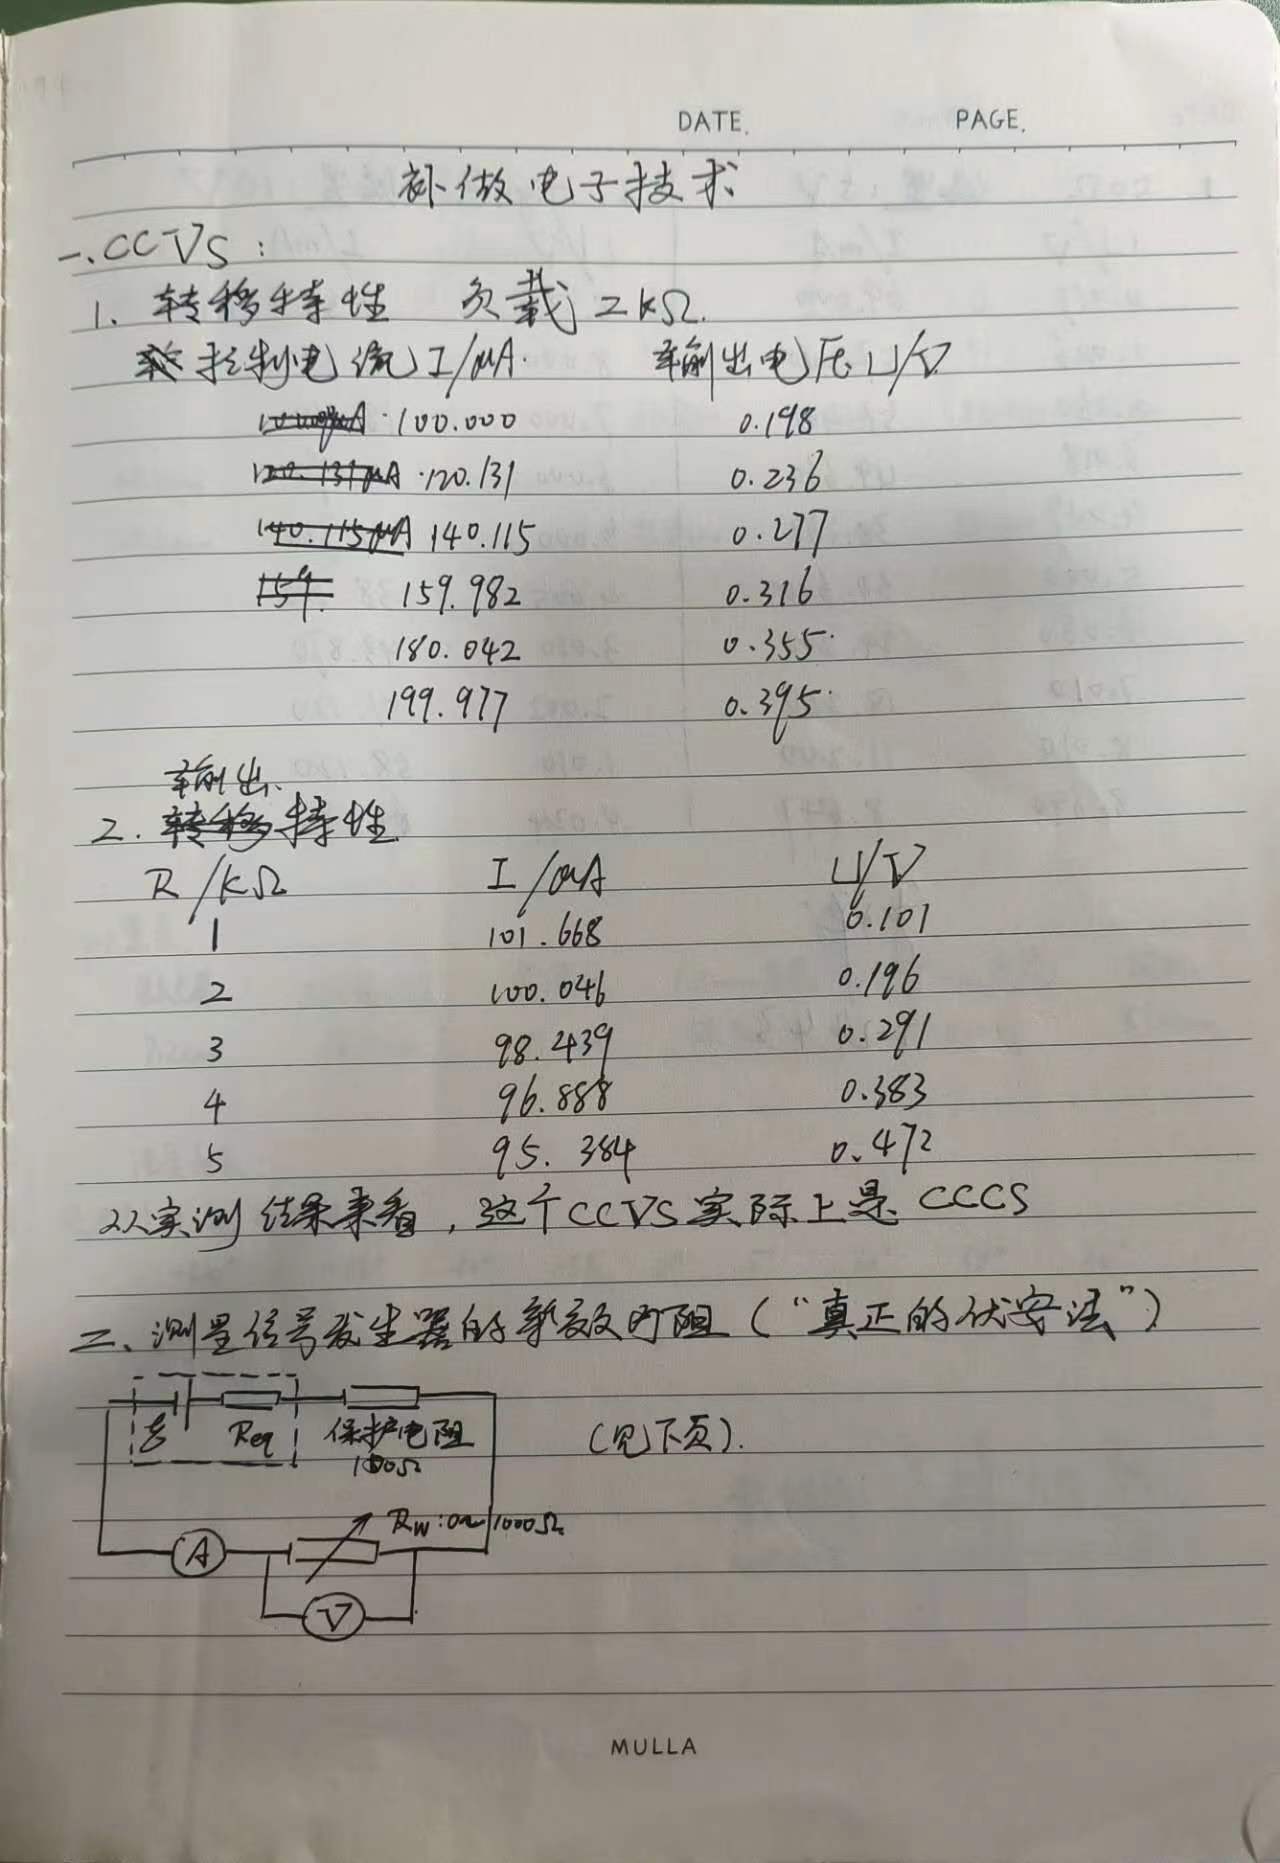 DATE. PAGE.
补做电子技术
一、CCVS:
1. 转移特性 负载2kΩ.
控制电流I/μA. 输出电压U/V
100.000 0.198
120.131 0.236
140.115 0.277
159.982 0.316
180.042 0.355
199.977 0.395
输出
2. 转移特性
R/kΩ I/μA U/V
1 101.668 0.101
2 100.046 0.196
3 98.439 0.291
4 96.888 0.383
5 95.384 0.472
从实测结果来看,这个CCVS实际上是CCCS
二、测量信号发生器的等效内阻(“真正的伏安法”)
ε Req 保护电阻 (见下页).
100Ω
Rw:0~1000Ω
A
V
MULLA